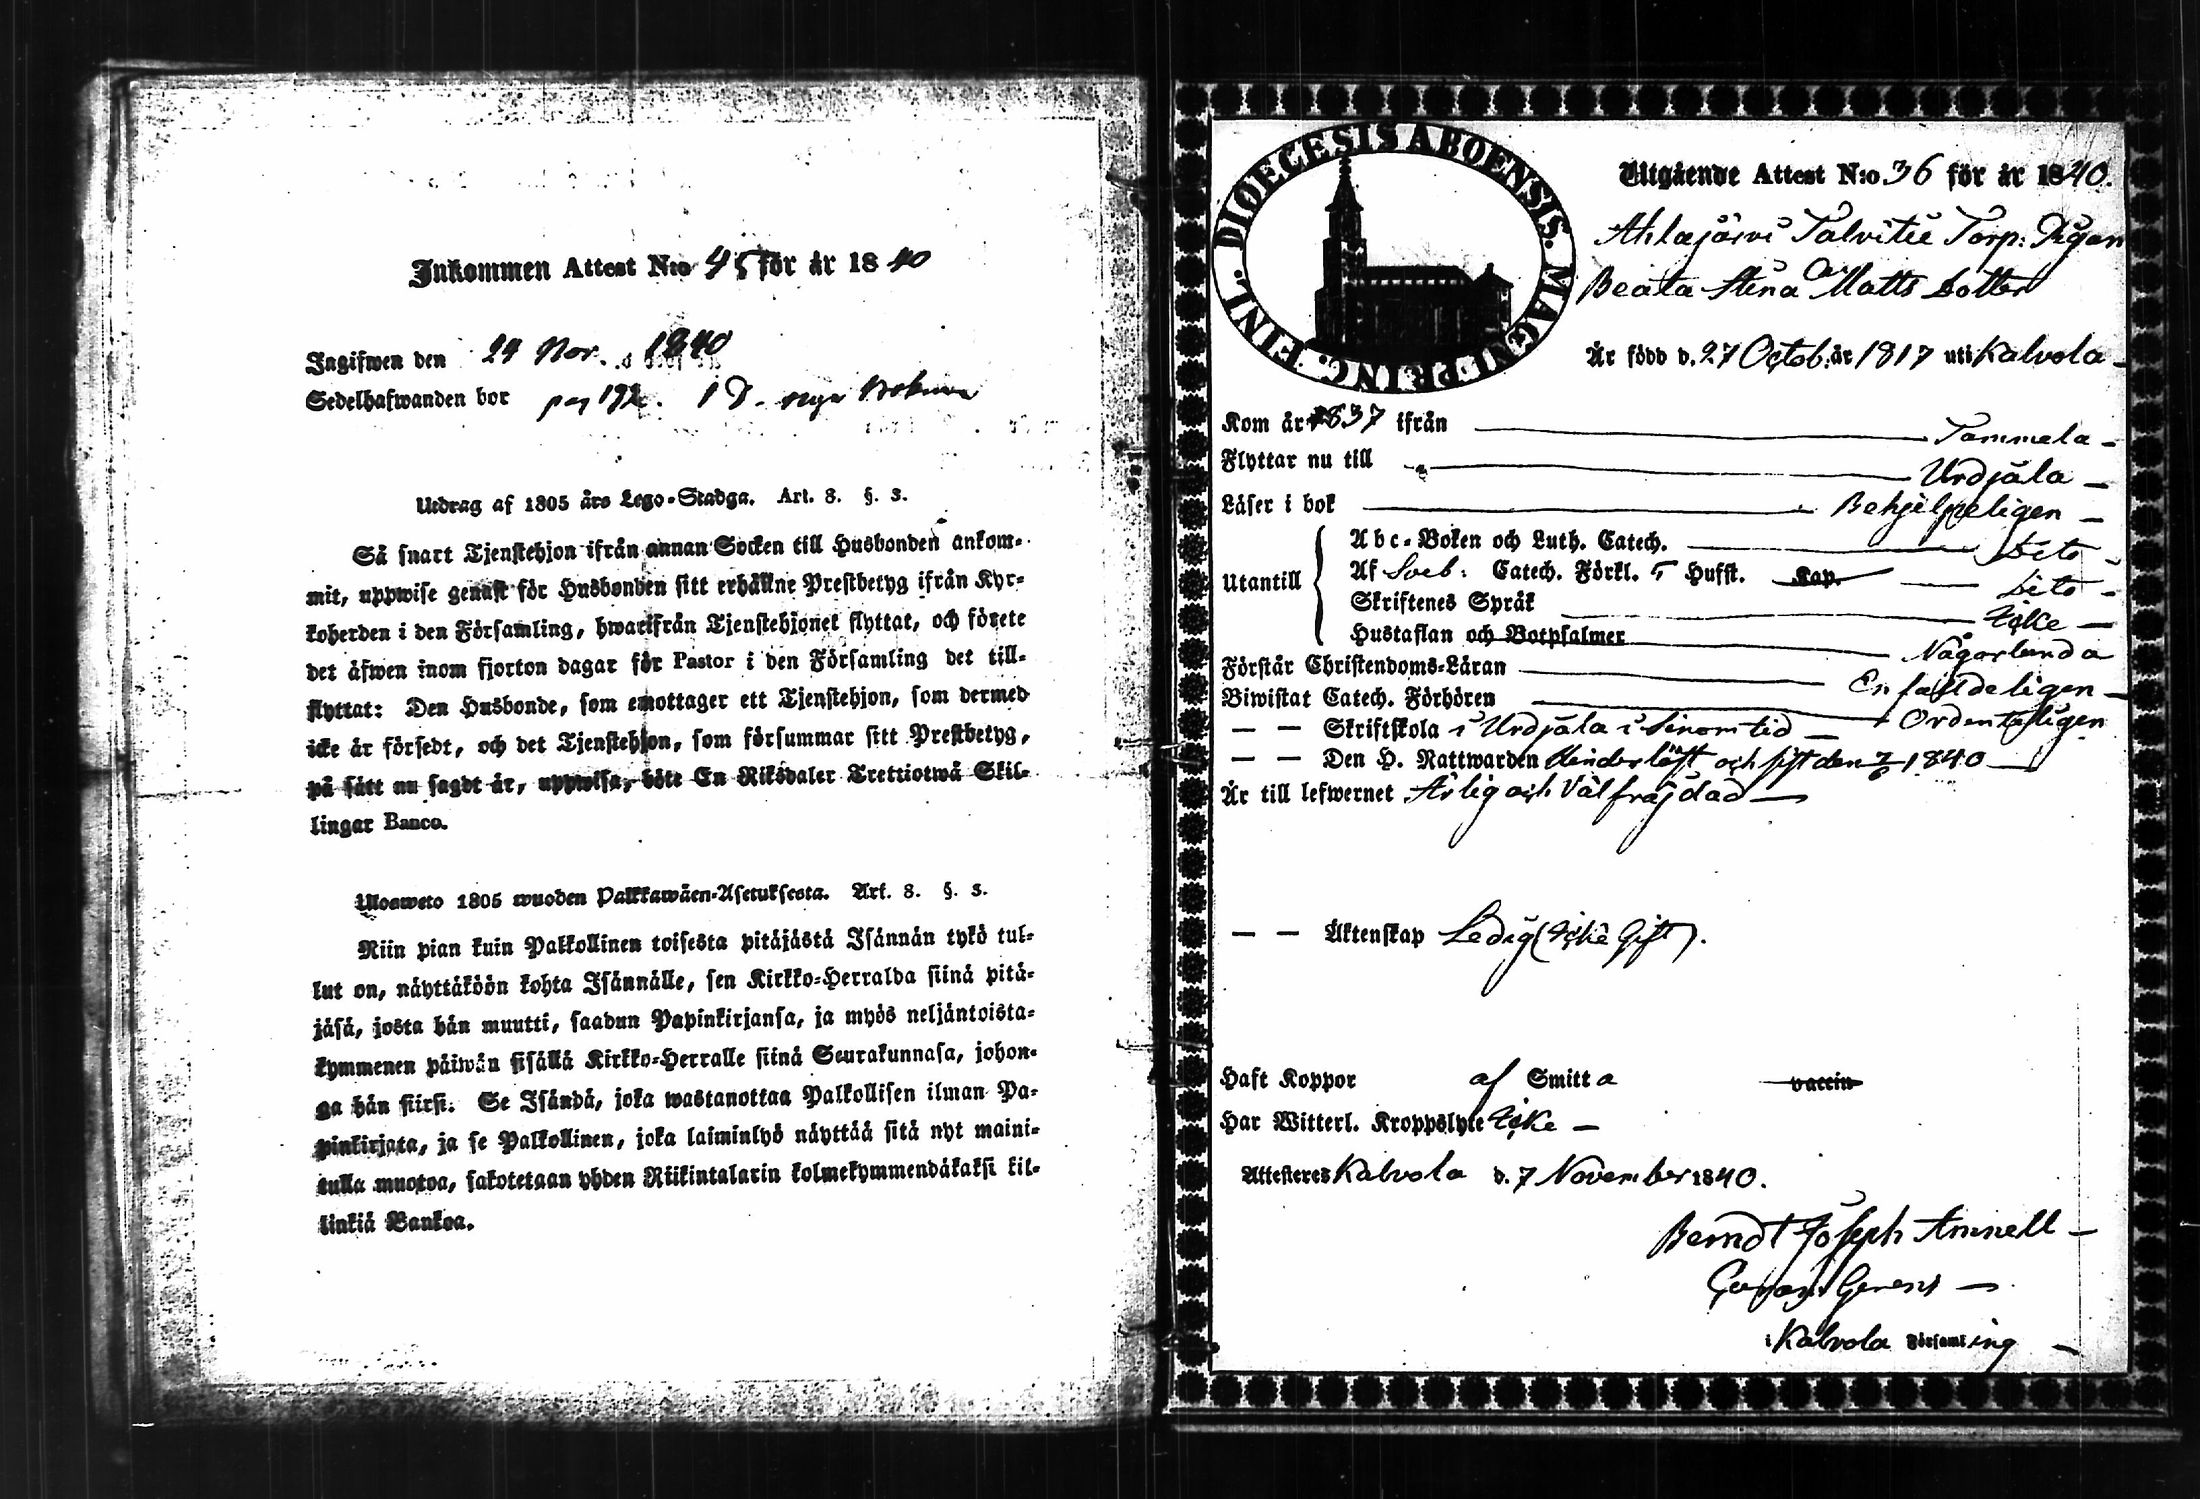 Inkommen Attest N:o 45 för år 1840
Ingifwen den 24 Nov. 1840
Sedelhafwanden bor pag 192. 1 D. nya Boken
Utdrag af 1805 års Lego-Stadga. Art. 8. §. 3.
Så snart Tjenstehjon ifrån annan Socken till Husbonden ankom-
mit, uppwise genast för Husbonden sitt erhållne Prestbetyg ifrån Kyr-
koherden i den Församling, hwarifrån Tjenstehjonet flyttat, och förete
det äfwen inom fjorton dagar för Pastor i den Församling det till-
flyttat: Den Husbonde, som emottager ett Tjenstehjon, som dermed
icke är försedt, och det Tjenstehjon, som försummar sitt Prestbetyg,
på sätt nu sagdt är, uppwisa, böte En Riksdaler Trettiotwå Skil-
lingar Banco.
Ulosweto 1805 wuoden Palkkawäen-Asetuksesta. Art. 8. §. 3.
Niin pian kuin Palkollinen toisesta pitäjästä Isännän tykö tul-
lut on, näyttäköön kohta Isännälle, sen Kirkko-Herralda siinä pitä-
jäsä, josta hän muutti, saadun Papinkirjansa, ja myös neljäntoista-
kymmenen päiwän sisällä Kirkko-Herralle siinä Seurakunnasa, johon-
ga hän siirsi. Se Isändä, joka wastanottaa Palkollisen ilman Pa-
pinkirjata, ja se Palkollinen, joka laiminlyö näyttää sitä nyt maini-
tulla muotoa, sakotetaan yhden Riikintalarin kolmekymmendäkaksi kil-
linkiä Bankoa.
DIOECESIS ABOENSIS. MAGNI PRINC. FINL.
Utgående Attest N:o 36 för år 1840.
Ahlajärvi Talvitie Torp: Pigan
Beata Stina Matts Dotter
Är född d. 27 Octob. år 1817 uti Kalvola
Kom år 1837 ifrån Tammela
Flyttar nu till Urdjala
Läser i bok Behjelpeligen
Utantill
Abc-Boken och Luth. Catech. Dito
Af Sveb: Catech. Förkl. 5 Hufst. Kap. Dito
Skriftenes Språk Icke
Hustaflan och Botpsalmer Någorlunda
Förstår Christendoms-Läran Enfalldeligen
Biwistat Catech. Förhören Ordenteligen
— — Skriftskola i Urdjala i Sinom tid
— — Den H. Nattwarden Hinderlöst och sist den 7/6 1840
Är till lefwernet Ärlig och Välfräjdad
— — Äktenskap Ledig (Icke Gift).
Haft Koppor af Smitta vaccin
Har Witterl. Kroppslyte Icke
Attesteres Kalvola d. 7 November 1840.
Berndt Joseph Amnell
i Kalvola Församling